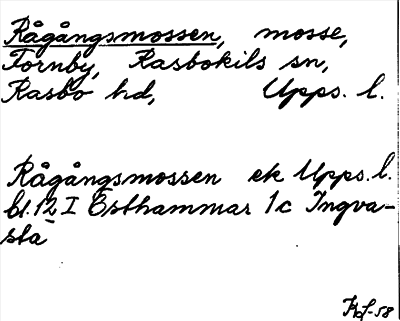 Rågångsmossen, mosse,
Fornby, Rasbokils sn,
Rasbo hd, Upps. l.
Rågångsmossen ek Upps. l.
bl. 12 I Östhammar 1c Ingva-
sta